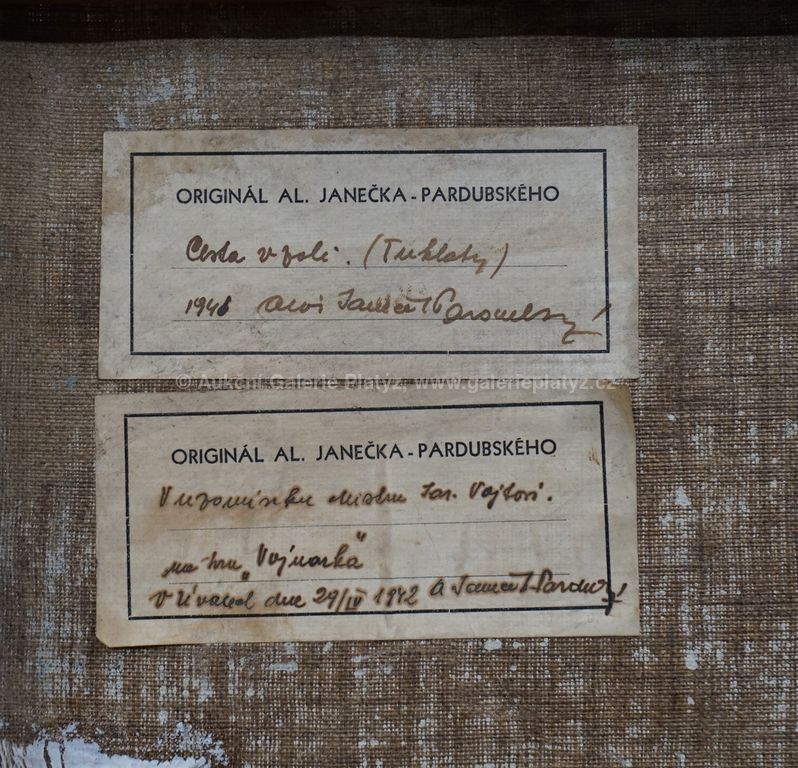 ORIGINÁL AL. JANEČKA-PARDUBSKÉHO
Cesta v poli. (Tuklaty)
1941 Alois Janeček Pardubský
© Aukční Galerie Platýz, www.galerieplatyz.cz
ORIGINÁL AL. JANEČKA-PARDUBSKÉHO
V upomínku Mistru Jar. Vojtovi.
na hru „Vojnarka"
V Úvalech dne 29/IV 1942 A Janeček Pardubský